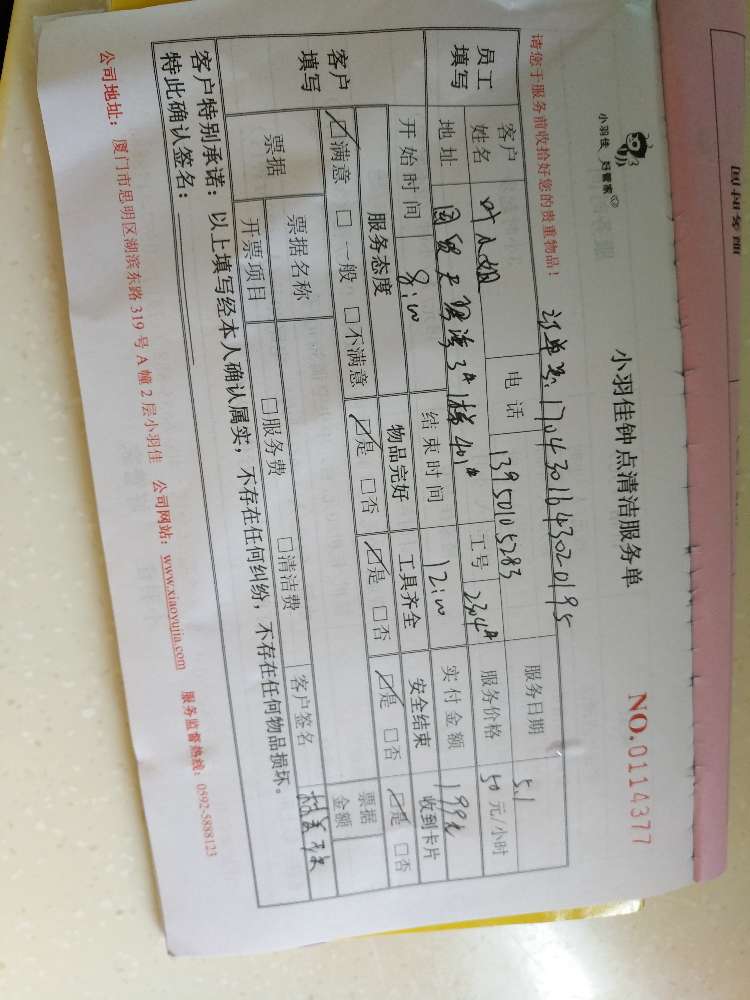 小羽佳 好管家
小羽佳钟点清洁服务单
NO.0114377
请您于服务前收拾好您的贵重物品！
订单号：1704301643020195
服务日期 5.1
员工填写
客户姓名 叶小姐 电话 13950105283 工号 2304# 服务价格 50元/小时
地址 国贸天琴湾3#1梯401# 实付金额 199元
开始时间 8:00 结束时间 12:00
客户填写
服务态度 物品完好 工具齐全 安全结束 收到卡片
☑满意 □一般 □不满意 ☑是 □否 ☑是 □否 ☑是 □否 ☑是 □否
票据 票据名称 票据金额
开票项目 □服务费 □清洁费 客户签名
客户特别承诺：以上填写经本人确认属实，不存在任何纠纷，不存在任何物品损坏。
特此确认签名：
公司地址：厦门市思明区湖滨东路319号A幢2层小羽佳 公司网站：www.xiaoyujia.com 服务监督热线：0592-5888123